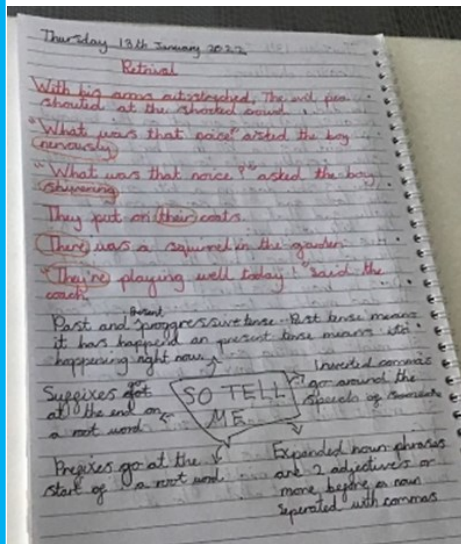 Thursday 13th January 2022
Retrival
With big arms outstreached, The evil pea
shouted at the shocked
"What was that noise" asked the boy
nervously
"What was that noice?" asked the boy
shivering
They put on their coats.
There was a squirrel in the garden
"They're playing well today!" said the
coach.
Present
Past and proggressive tense. Past tense means
it has happend an present tense means its
happening right now.
Suffixes go
at the end on
a root word
SO TELL
ME
Inverted commas
go around the
speech of someone
Prefixes go at the
start of a root word
Expanded noun phrases
are 2 adjectives or
more before a noun
seperated with commas